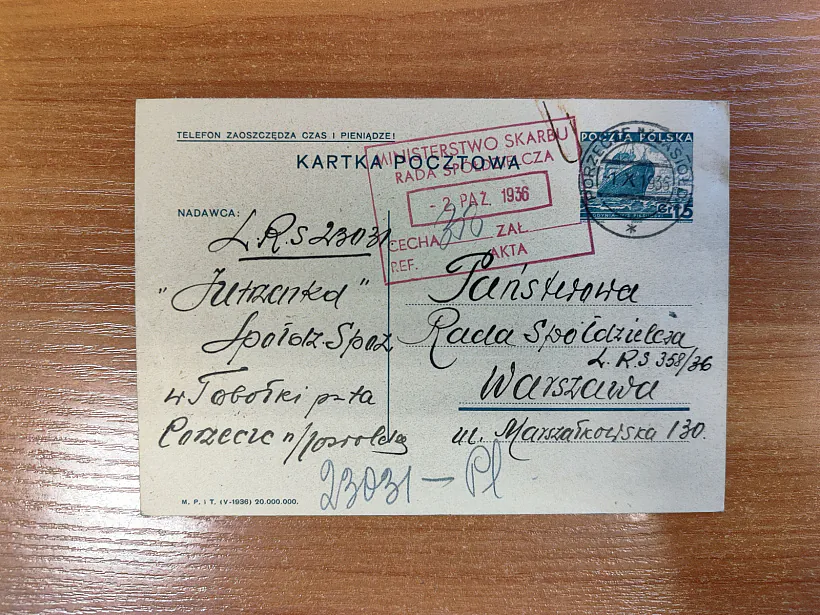 TELEFON ZAOSZCZĘDZA CZAS I PIENIĄDZE!
KARTKA POCZTOWA
MINISTERSTWO SKARBU
RADA SPÓŁDZIELCZA
- 2 PAŹ. 1936
CECHA 350 ZAŁ.
REF. AKTA
POCZTA POLSKA
GR. 15
NADAWCA:
L.R.S 23031
"Jutrzenka"
Spółdz. Spoż
w Tobołki p-ta
Porzecze n/
Państwowa
Rada Spółdzielcza
L.R.S 358/36
Warszawa
ul. Marszałkowska 130.
23031 — Pl
M. P. i T. (V-1936) 20.000.000.